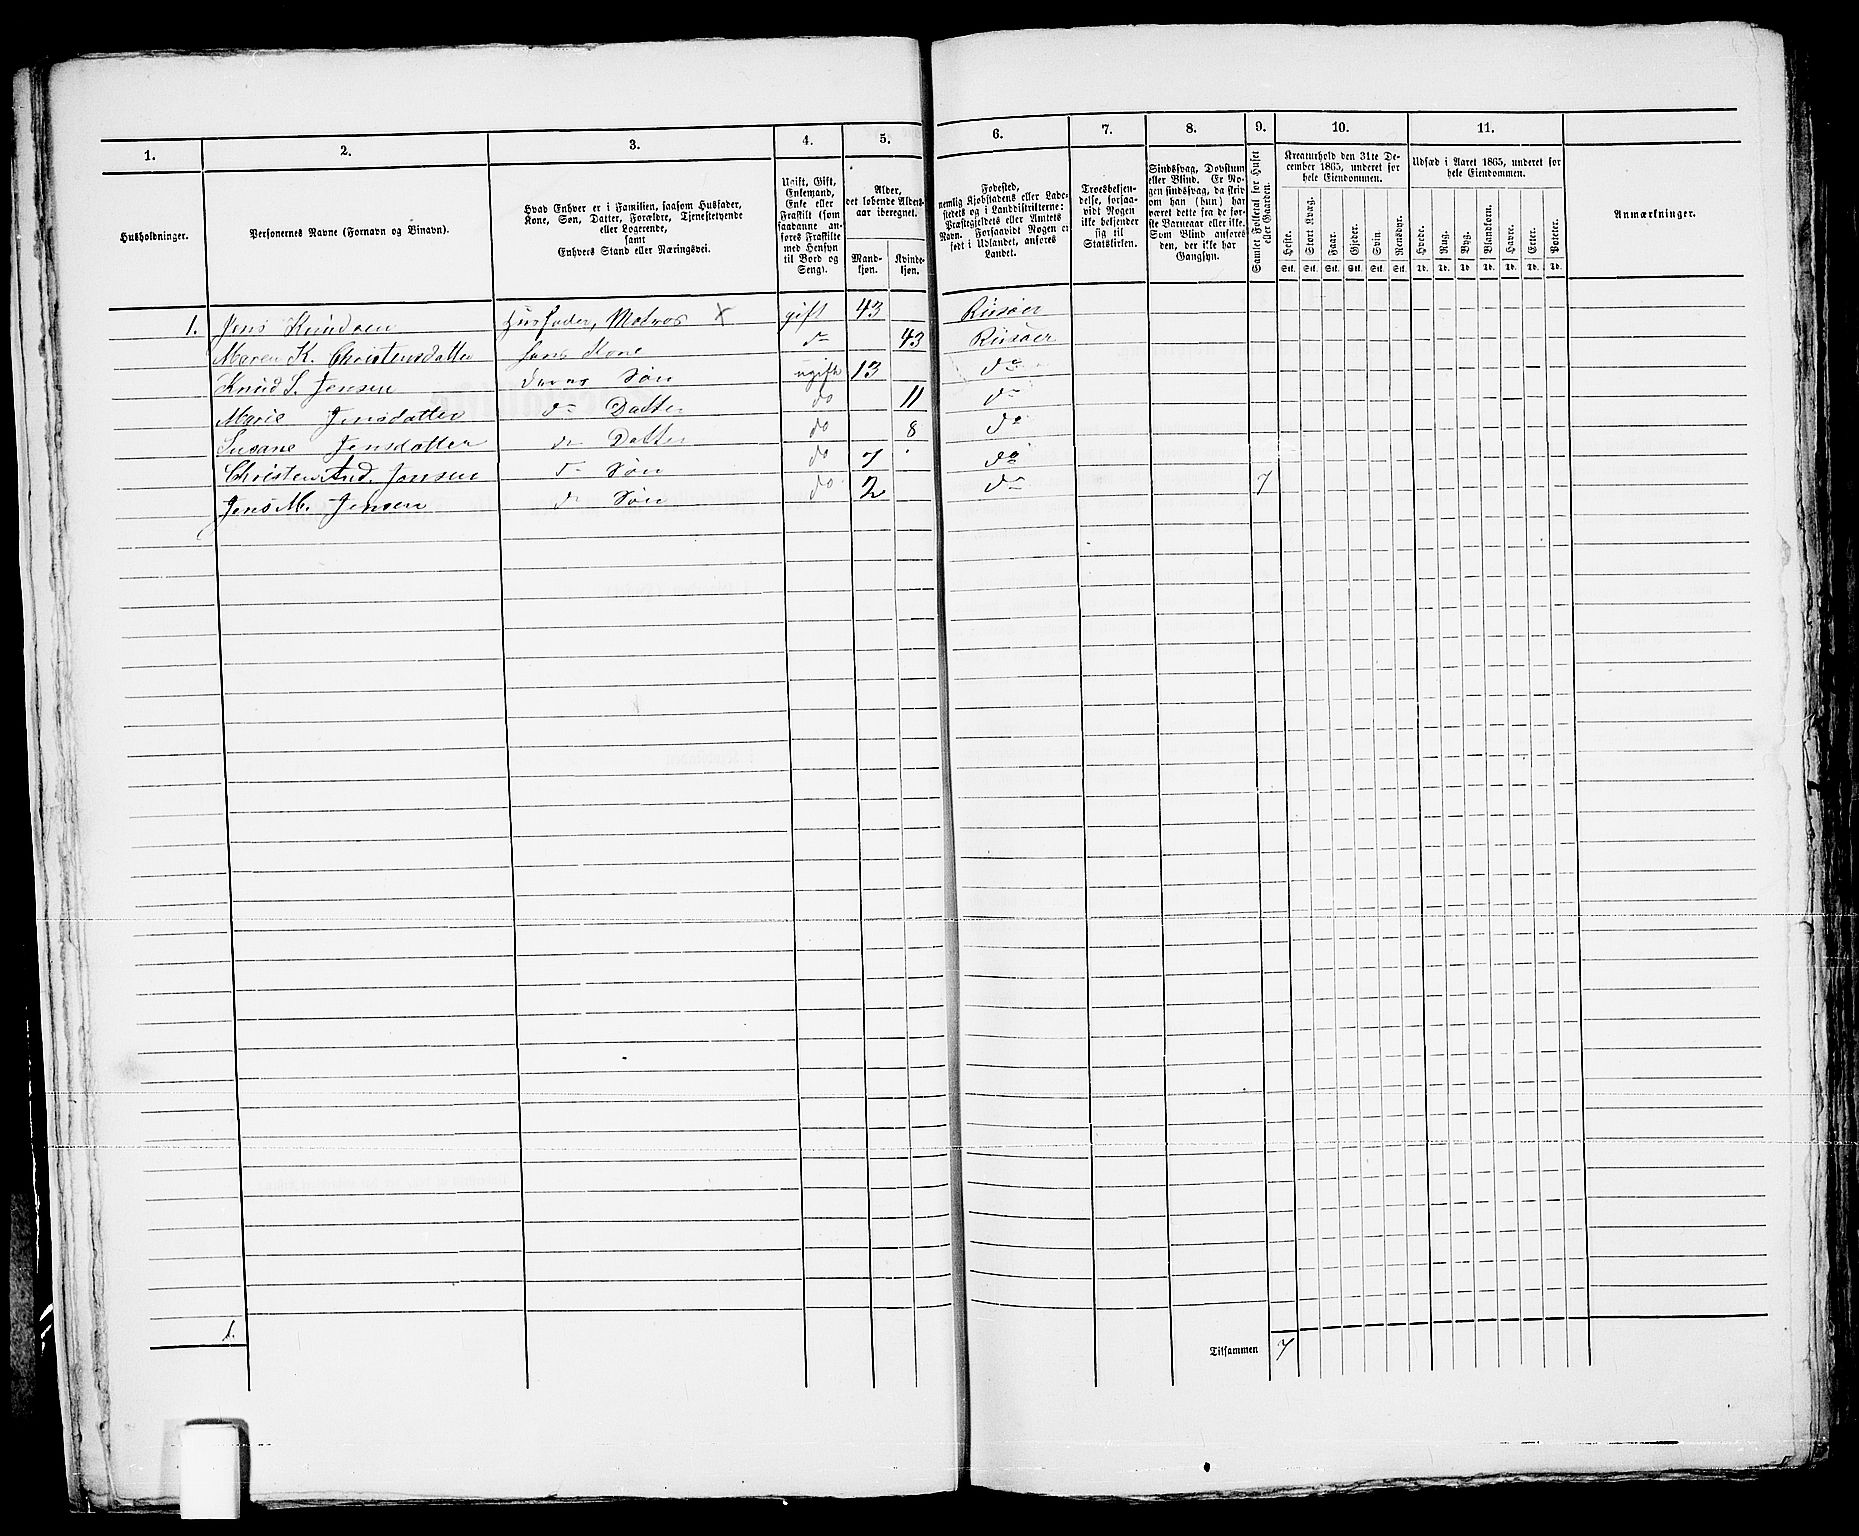 1. 2. 3. 4. 5. 6. 7. 8. 9. 10. 11.
Husholdninger.
Personernes Navne (Fornavn og Binavn).
Hvad Enhver er i Familien, saasom Husfader,
Kone, Søn, Datter, Forældre, Tjenestetyende
eller Logerende,
samt
Enhvers Stand eller Næringsvei.
Ugift, Gift,
Enkemand,
Enke eller
Fraskilt (som
saadanne an-
føres Fraskilte
med Hensyn
til Bord og
Seng).
Alder,
det løbende Alders-
aar iberegnet.
Mand-
kjøn.
Kvinde-
kjøn.
Fødested,
nemlig Kjøbstadens eller Lade-
stedets og i Landdistrikterne:
Præstegjeldets eller Amtets
Navn. Forsaavidt Nogen er
født i Udlandet, anføres
Landet.
Troesbekjen-
delse, forsaa-
vidt Nogen
ikke bekjender
sig til
Statskirken.
Sindssvag, Døvstum
eller Blind. Er No-
gen sindssvag, da skriv
om han (hun) har
været dette fra de før-
ste Barneaar eller ikke.
Som Blind anføres
den, der ikke har
Gangsyn.
Samlet Folketal for Huset
eller Gaarden.
Kreaturhold den 31te De-
cember 1865, underet for
hele Eiendommen.
Heste. Stort Kvæg. Faar. Gjeder. Svin. Rensdyr.
Stk. Stk. Stk. Stk. Stk. Stk.
Udsæd i Aaret 1865, underet for
hele Eiendommen.
Hvede. Rug. Byg. Blandkorn. Havre. Erter. Poteter.
Td. Td. Td. Td. Td. Td. Td.
Anmærkninger.
1. Jens Knudsen Husfader, Matros X gift 43 Riisøer
Maren K. Christensdatter hans Kone do 43 Riisøer
Knud S. Jensen deres Søn ugift 13 do
Marie Jensdatter do Datter do 11 do
Susane Jensdatter do Datter do 8 do
Christen And. Jensen do Søn do 7 do
Jens M. Jensen do Søn do 2 do 7
1. Tilsammen 7